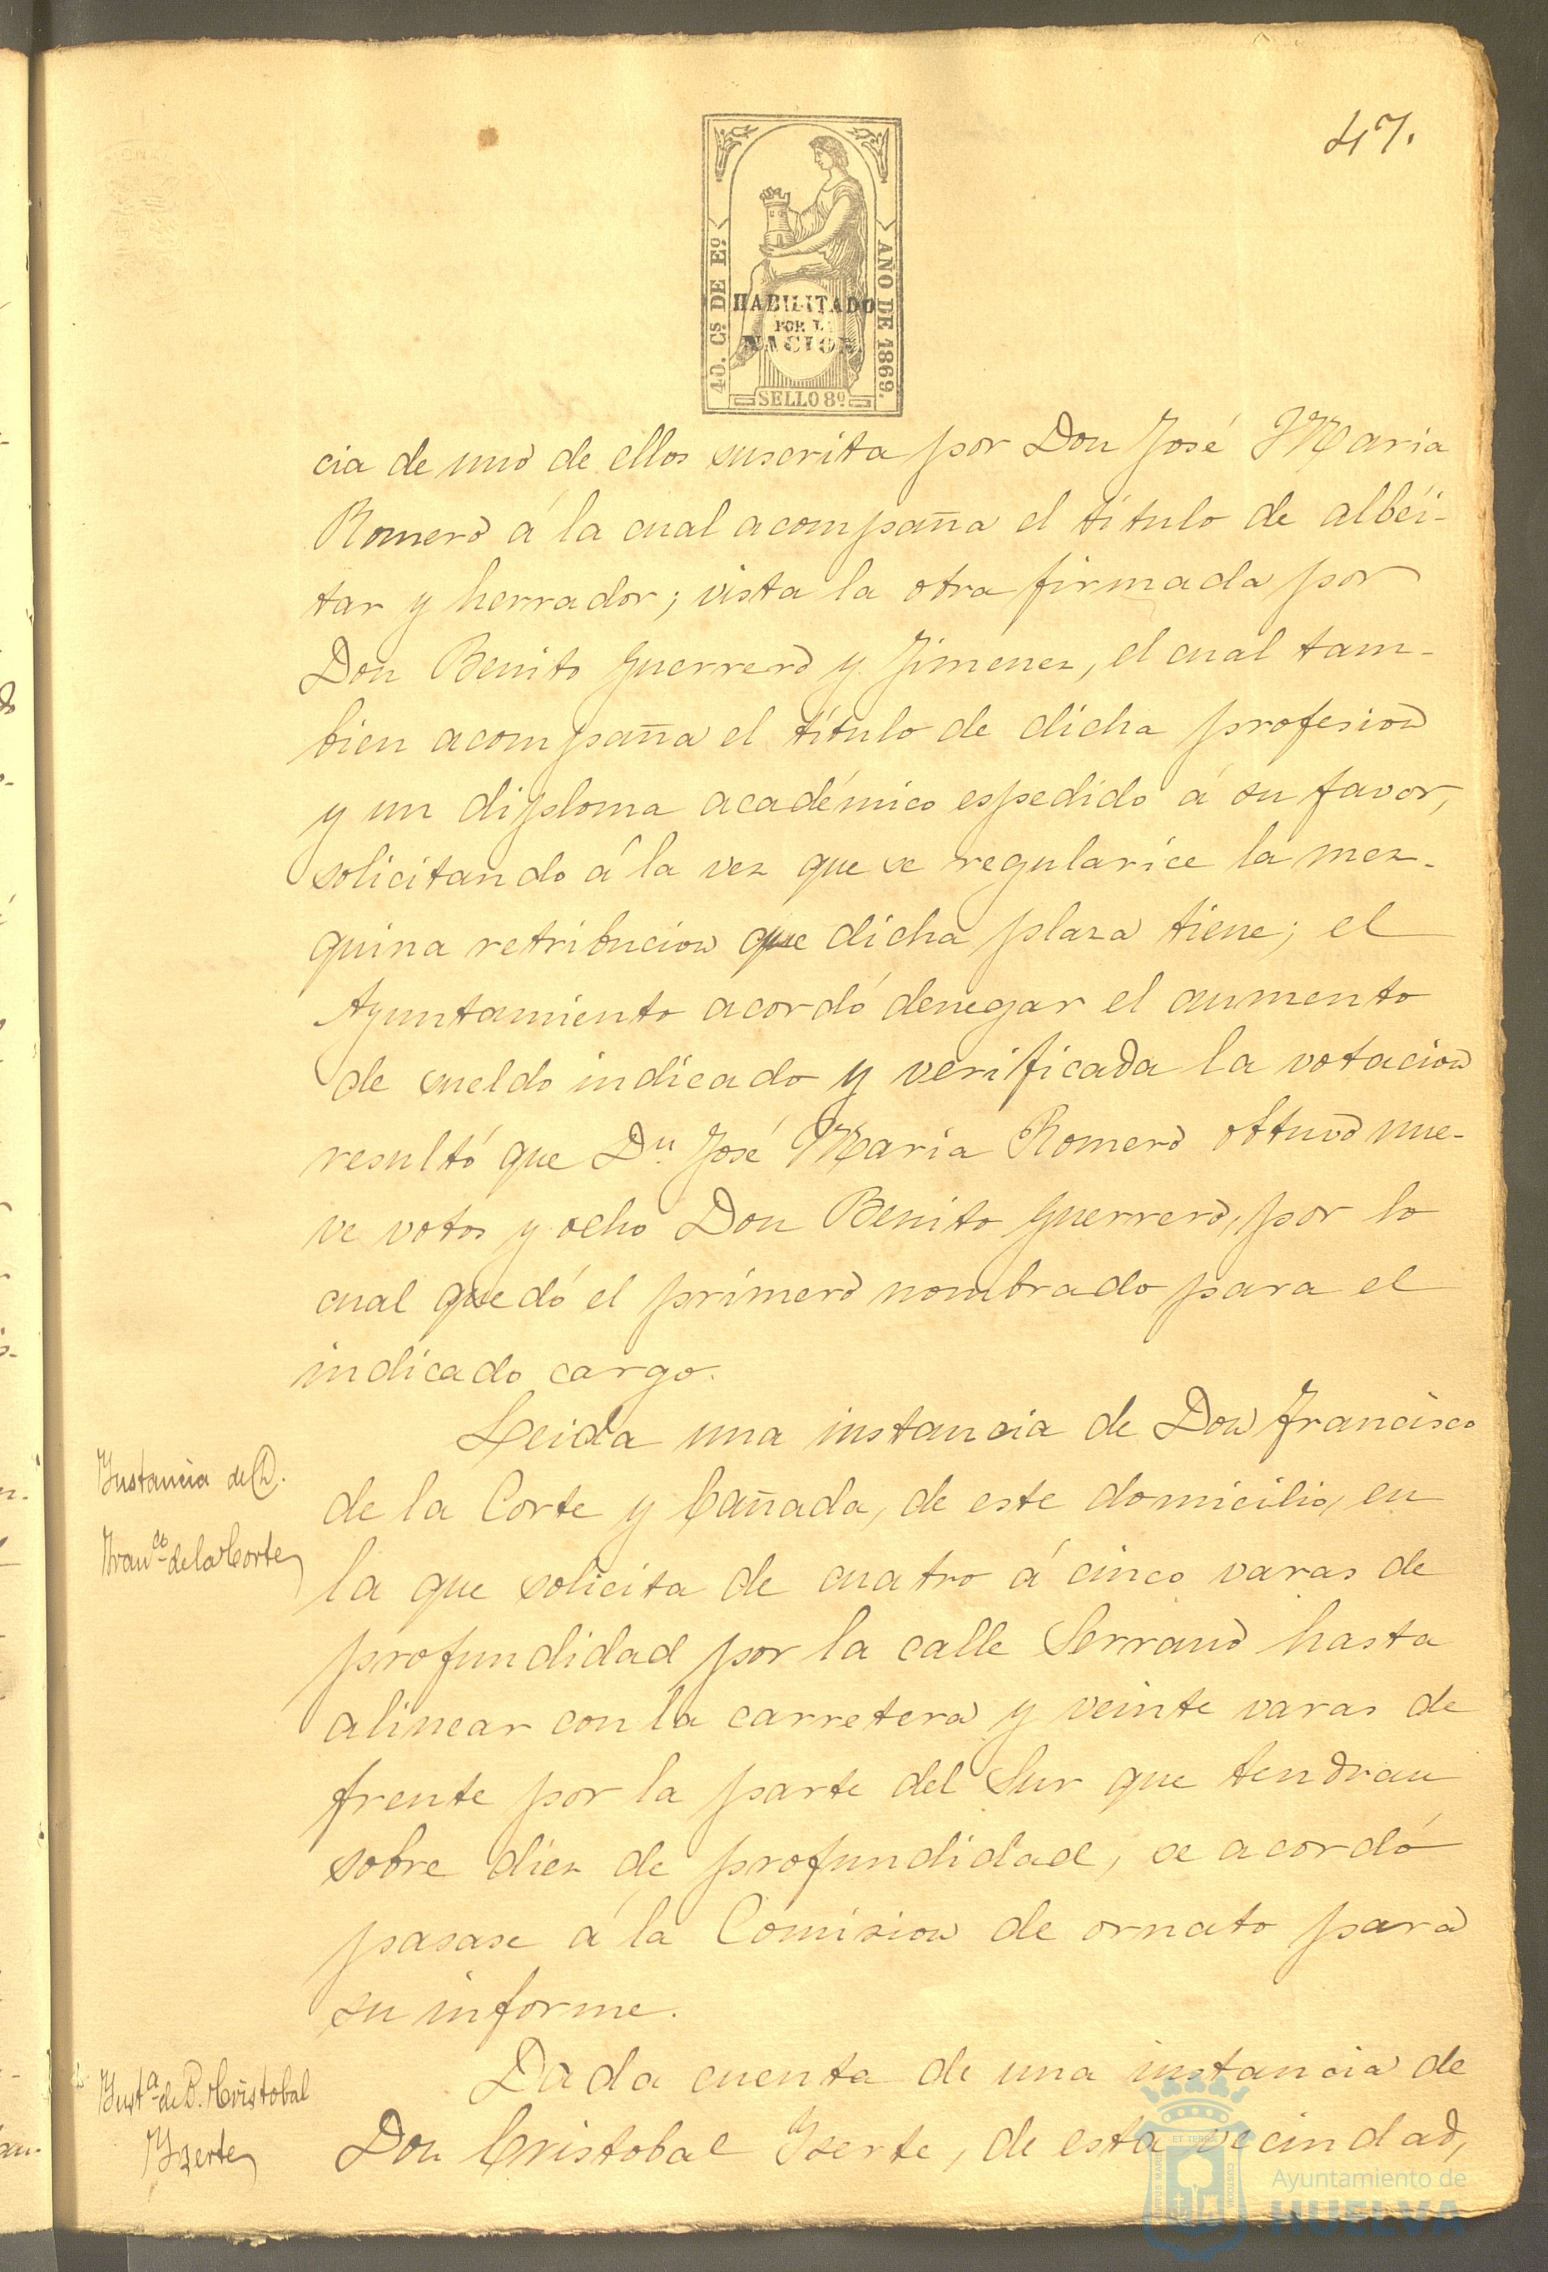 47.
40. Cs. DE Eº
AÑO DE 1869.
HABILITADO
POR LA
NACION
SELLO 8º
cia de uno de ellos suscrita por Don José Maria
Romero á la cual acompaña el título de albéi-
tar y herrador; vista la otra firmada por
Don Benito Guerrero y Jimenez, el cual tam-
bien acompaña el título de dicha profesion
y un diploma académico espedido á su favor,
solicitando á la vez que se regularice la mez-
quina retribucion que dicha plaza tiene; el
Ayuntamiento acordó denegar el aumento
de sueldo indicado y verificada la votacion
resultó que Dn. José Maria Romero obtuvo nue-
ve votos y ocho Don Benito Guerrero, por lo
cual quedó el primero nombrado para el
indicado cargo.
Instancia de D.
Franco. de la Corte
Leida una instancia de Don Francisco
de la Corte y Cañada, de este domicilio, en
la que solicita de cuatro á cinco varas de
profundidad por la calle Serrano hasta
alinear con la carretera y veinte varas de
frente por la parte del Sur que tendran
sobre diez de profundidad, se acordó
pasase á la Comision de ornato para
su informe.
Insta. de D. Cristobal
Yzerte
Dada cuenta de una instancia de
Don Cristobal Yzerte, de esta vecindad,
Ayuntamiento de
HUELVA